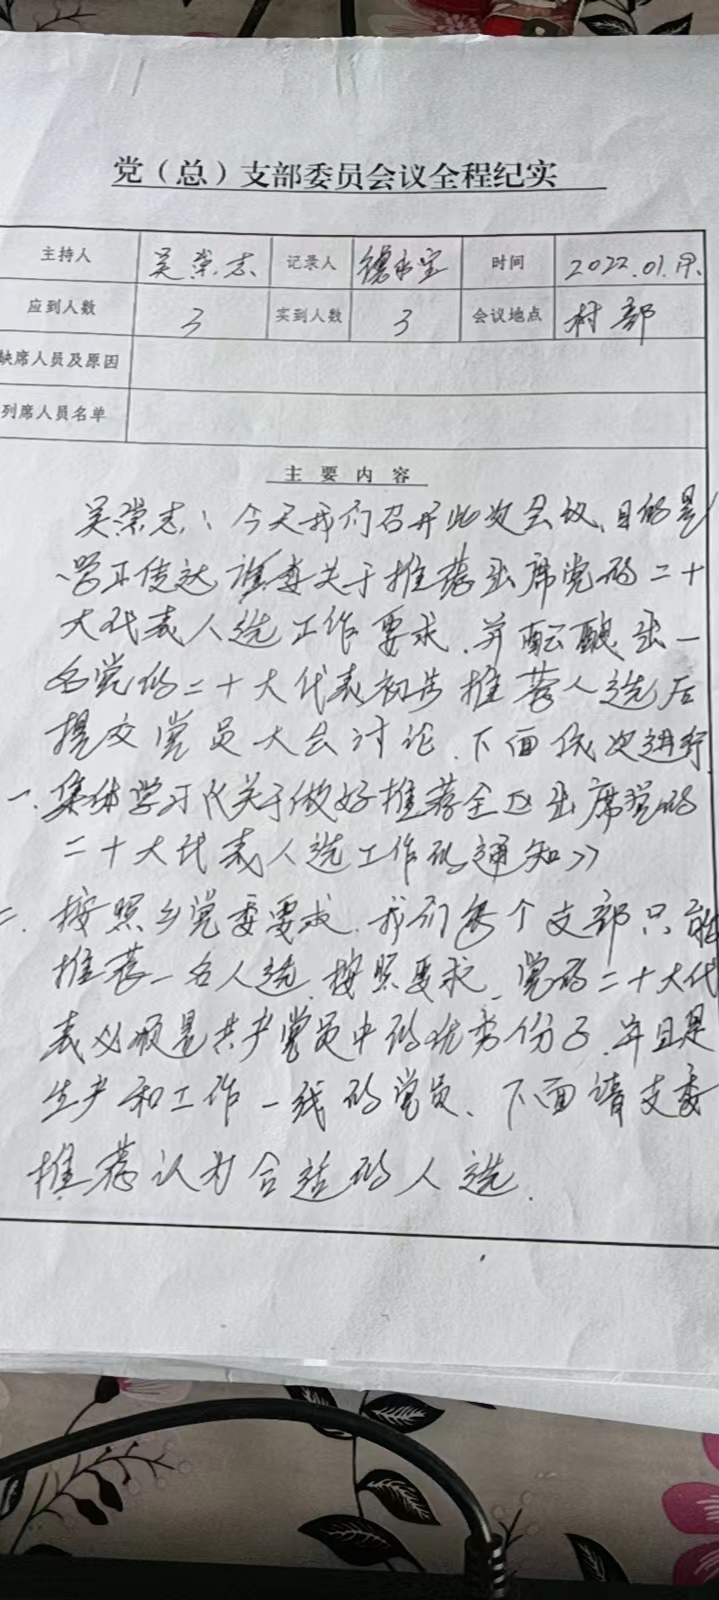 党（总）支部委员会议全程纪实
主持人 吴崇志 记录人 德宝 时间 2022.01.
应到人数 3 实到人数 3 会议地点 村部
缺席人员及原因
列席人员名单
主要内容
吴崇志：今天我们召开此次会议、目的是
学习传达 党委关于推荐出席党的二十
大代表人选工作要求.并酝酿出一
名党的二十大代表初步推荐人选后
提交党员大会讨论.下面依次进行
一.集体学习《关于做好推荐全区出席党的
二十大代表人选工作的通知》
二.按照乡党委要求.我们每个支部只能
推荐一名人选.按照要求、党的二十大代
表必须是共产党员中的优秀份子.并且是
生产和工作一线的党员、下面请支委
推荐认为合适的人选.